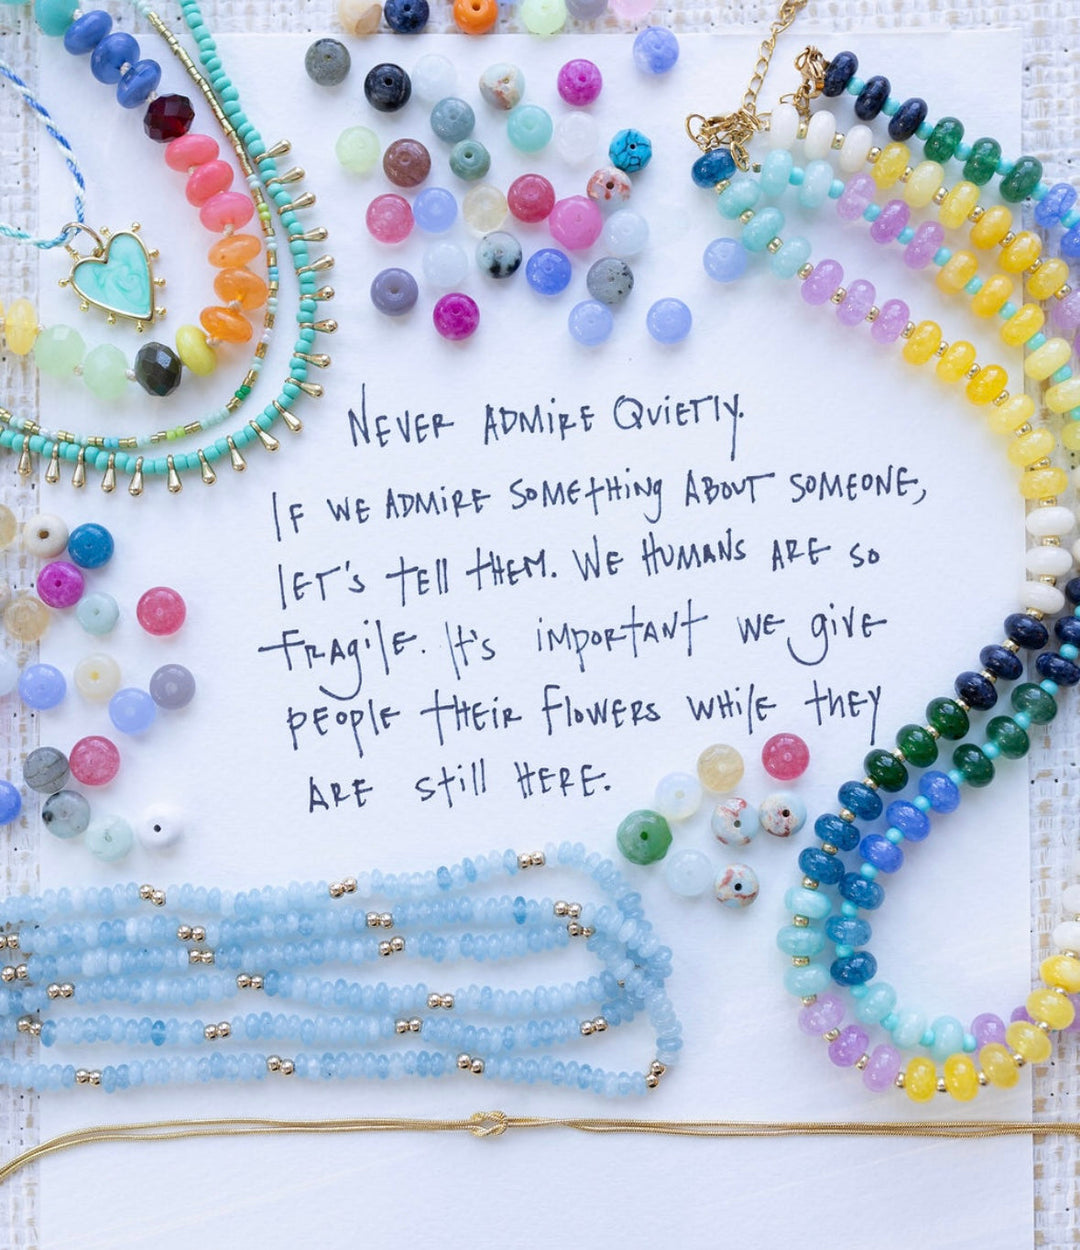 Never admire quietly.
If we admire something about someone,
let's tell them. We humans are so
fragile. It's important we give
people their flowers while they
are still here.